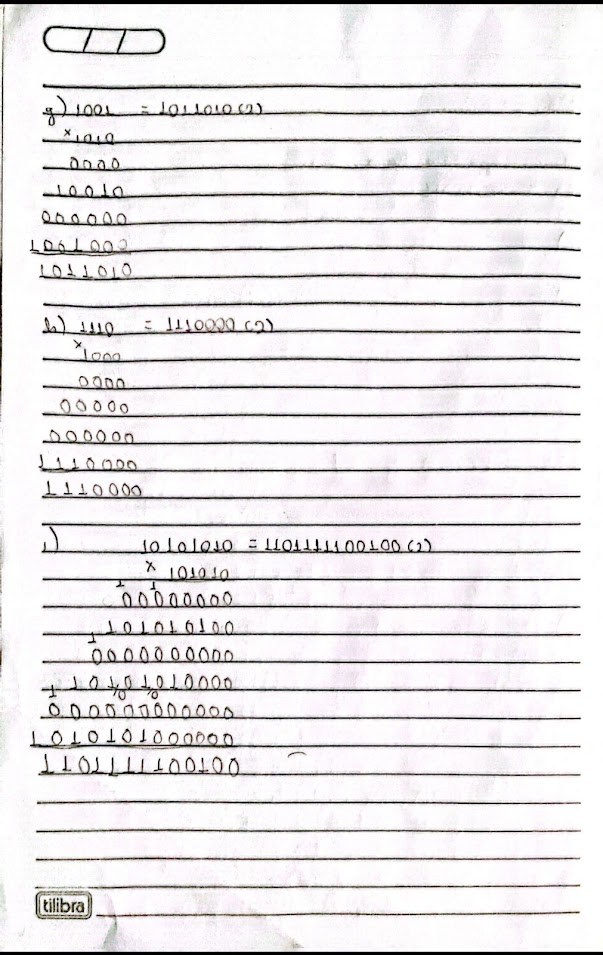 g) 1001 = 1011010(2)
×1010
0000
10010
000000
1001000
1011010
h) 1110 = 1110000(2)
×1000
0000
00000
000000
1110000
1110000
i) 10101010 = 1101111100100(2)
× 101010
1 1
00000000
101010100
1
0000000000
10101010000
1 10 10
000000000000
1010101000000
1101111100100
tilibra